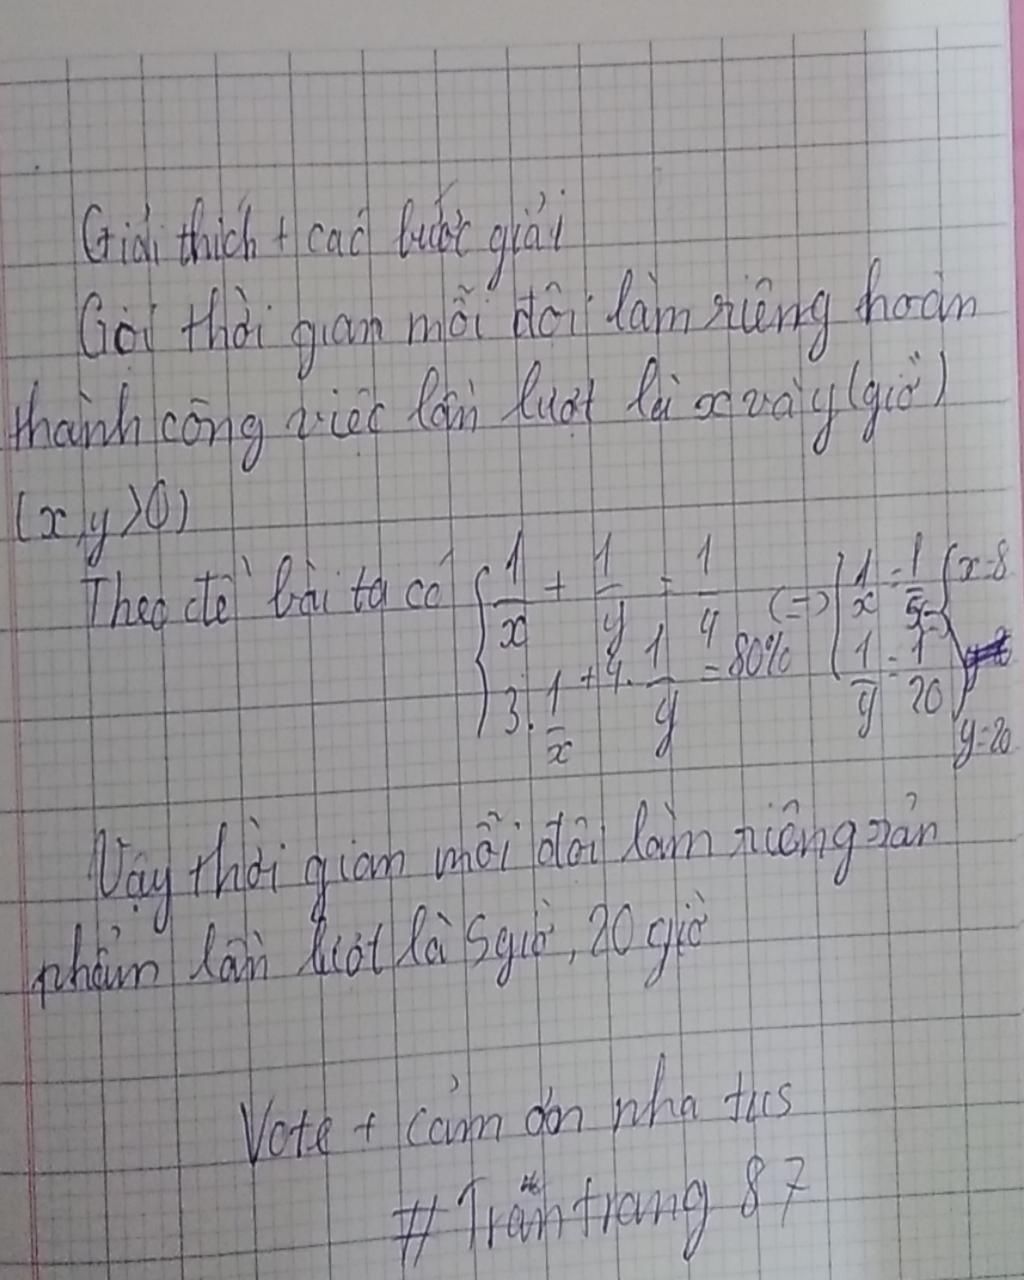 Giải thích + các bước giải
Gọi thời gian mỗi đội làm riêng hoàn
thành công việc lần lượt là x và y (giờ)
(x, y > 0)
Theo đề bài ta có { 1/x + 1/y = 1/4 (=) { 1/x = 1/5 { x = 8
3. 1/x + 4. 1/y = 80% { 1/y = 1/20
y = 20
Vậy thời gian mỗi đội làm riêng sản
phẩm lần lượt là 5 giờ, 20 giờ
Vote + cảm ơn nha tus
# Trần trang 87